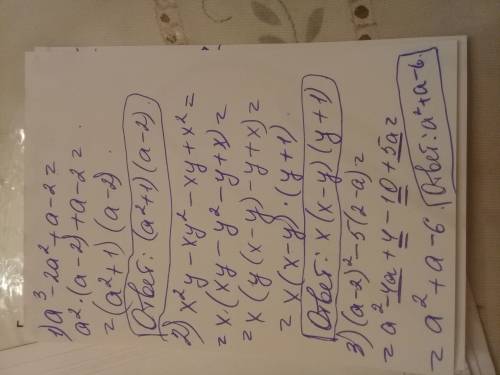 1) a³-2a²+a-2=
a²·(a-2)+a-2=
=(a²+1)(a-2).
Ответ: (a²+1)(a-2).
2) x²y-xy²-xy+x²=
=x·(xy-y²-y+x)=
=x(y(x-y)-y+x)=
=x(x-y)·(y+1).
Ответ: x(x-y)(y+1)
3) (a-2)²-5(2-a)=
=a²-4a+4-10+5a=
=a²+a-6. Ответ: a²+a-6.